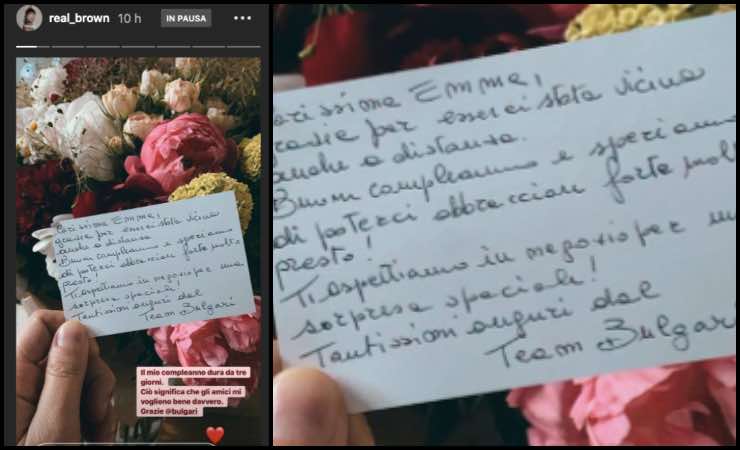 real_brown 10 h IN PAUSA
Carissima Emma,
grazie per esserci stata vicina
anche a distanza.
Buon compleanno e speriamo
di poterci abbracciare forte molto
presto!
Ti aspettiamo in negozio per una
sorpresa speciale!
Tantissimi auguri dal
Team Bulgari
Il mio compleanno dura da tre
giorni.
Ciò significa che gli amici mi
vogliono bene davvero.
Grazie @bulgari
arissima Emma,
grazie per esserci stata vicina
anche a distanza.
Buon compleanno e speriamo
di poterci abbracciare forte molt
presto!
Ti aspettiamo in negozio per un
sorpresa speciale!
Tantissimi auguri dal
Team Bulgari